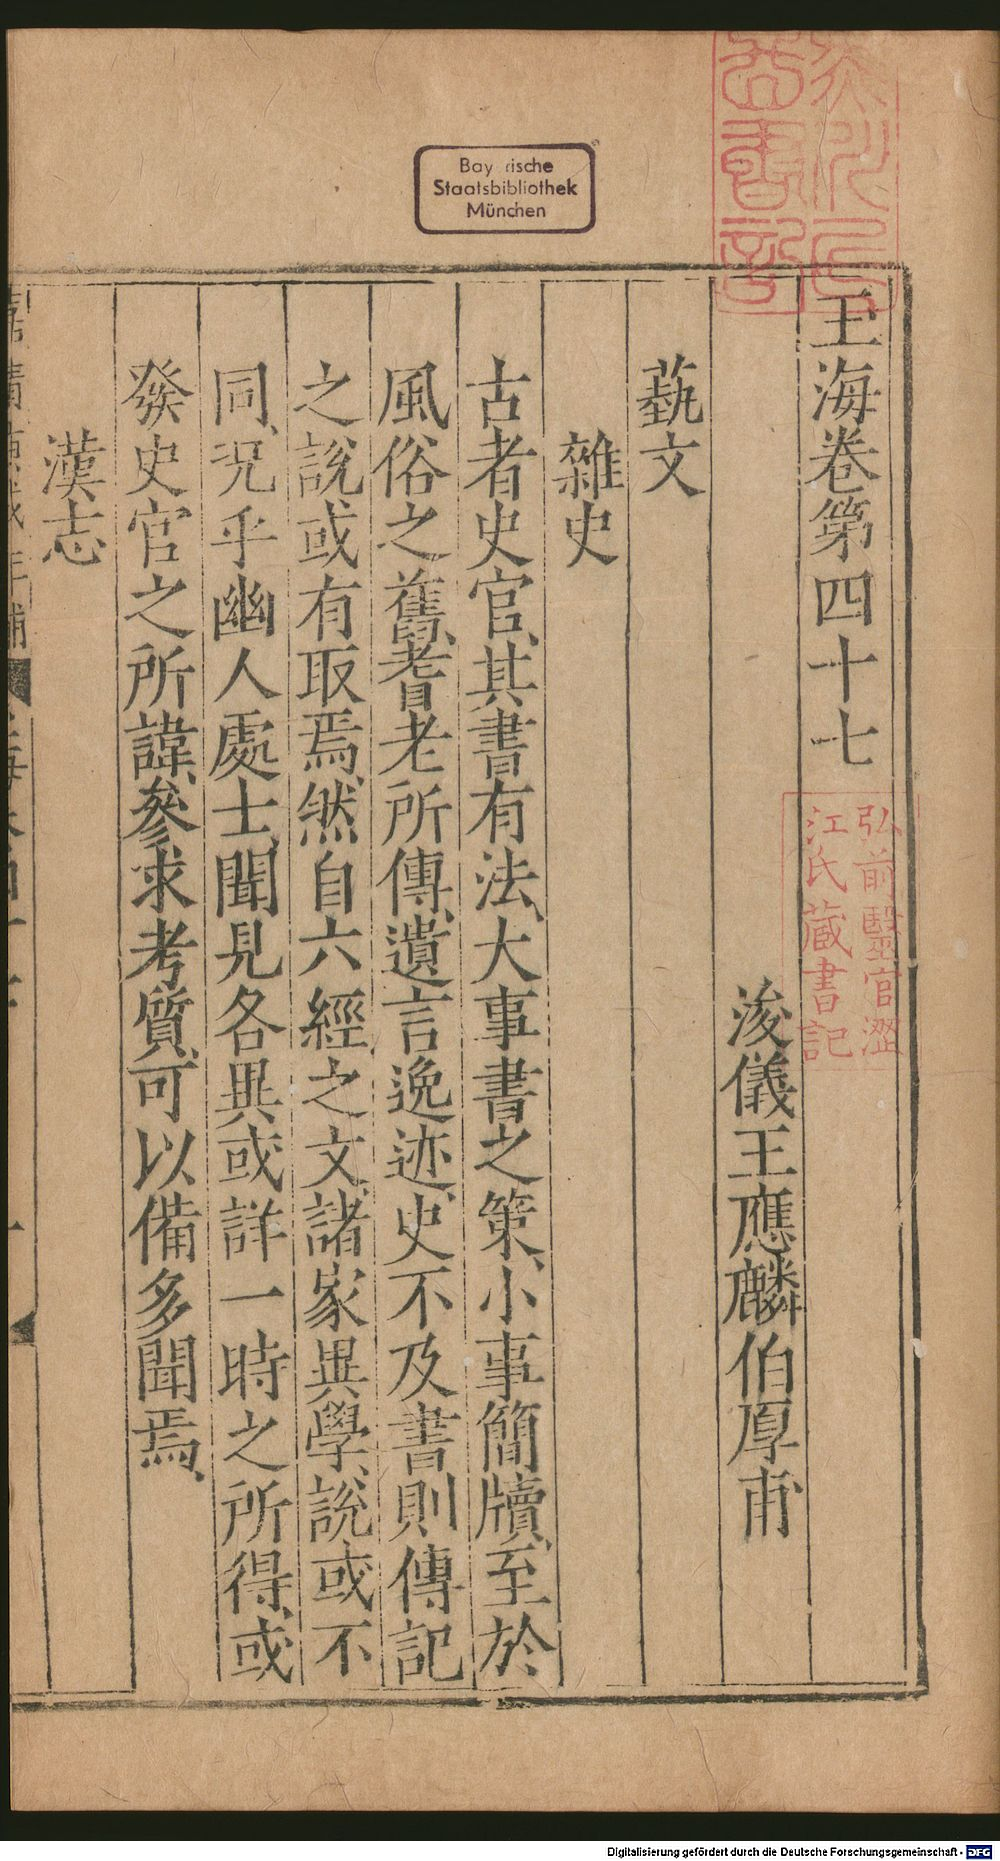 玉海卷第四十七
浚儀王應麟伯厚甫
藝文
雜史
古者史官、其書有法、大事書之策、小事簡牘、至於
風俗之舊、耆老所傳、遺言逸迹、史不及書則傳記
之說或有取焉、然自六經之文、諸家異學、說或不
同、況乎幽人處士、聞見各異或詳一時之所得、或
發史官之所諱、參求考質、可以備多聞焉、
漢志
弘前醫官澀
江氏藏書記
Staatsbibliothek
München
Digitalisierung gefördert durch die Deutsche Forschungsgemeinschaft - DFG